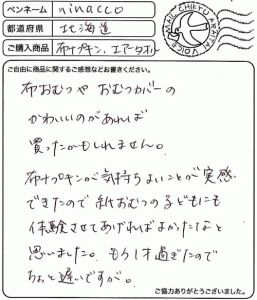 ペンネーム ninacco
都道府県 北海道
ご購入商品 布ナプキン、エアータオル
MAIL CHIKYU ARAITAI VOICE
ご自由に商品に関するご感想などお書きください。
布おむつや おむつカバーの
かわいいのがあれば
買ったかもしれません。
布ナプキンが気持ちよいことが実感
できたので 紙おむつの子どもにも
体験させてあげればよかったなと
思いました。もう1才過ぎたので
ちょっと遅いですが。
ご協力ありがとうございました。